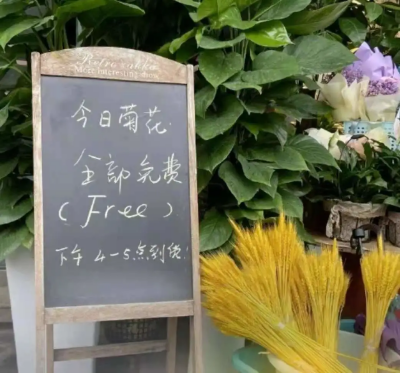 More interesting shore
今日菊花
全部免费
(Free)
下午 4-5点到货!